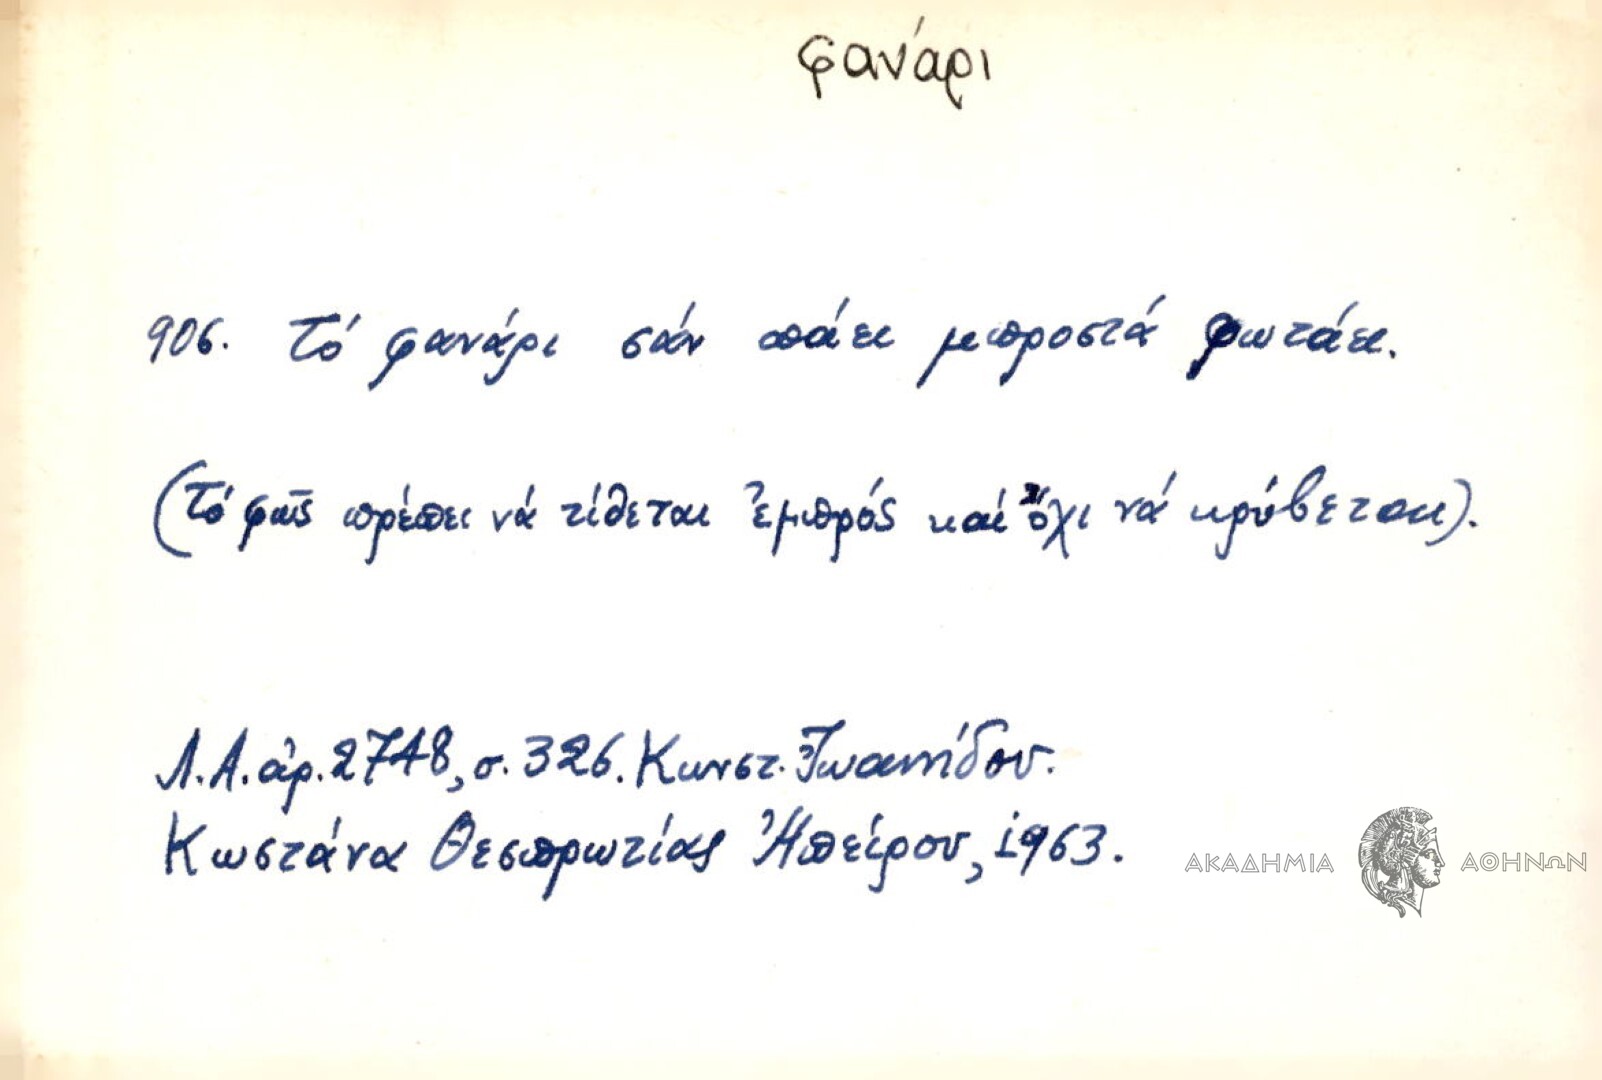 φανάρι
906. Τό φανάρι σάν πάει μπροστά φωτάει.
(Τό φῶς πρέπει νά τίθεται ἐμπρός καί ὄχι νά κρύβεται).
Λ.Α. ἀρ. 2748, σ. 326. Κωνστ. Ἰωαννίδου.
Κωστάνα Θεσπρωτίας Ἠπείρου, 1963.
ΑΚΑΔΗΜΙΑ ΑΘΗΝΩΝ